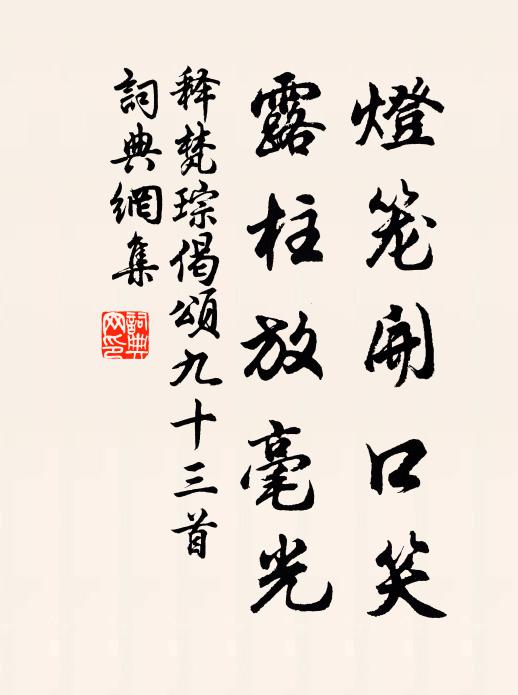 燈笼開口笑
露柱放毫光
释梵琮偈頌九十三首
詞典網集
詞典網印